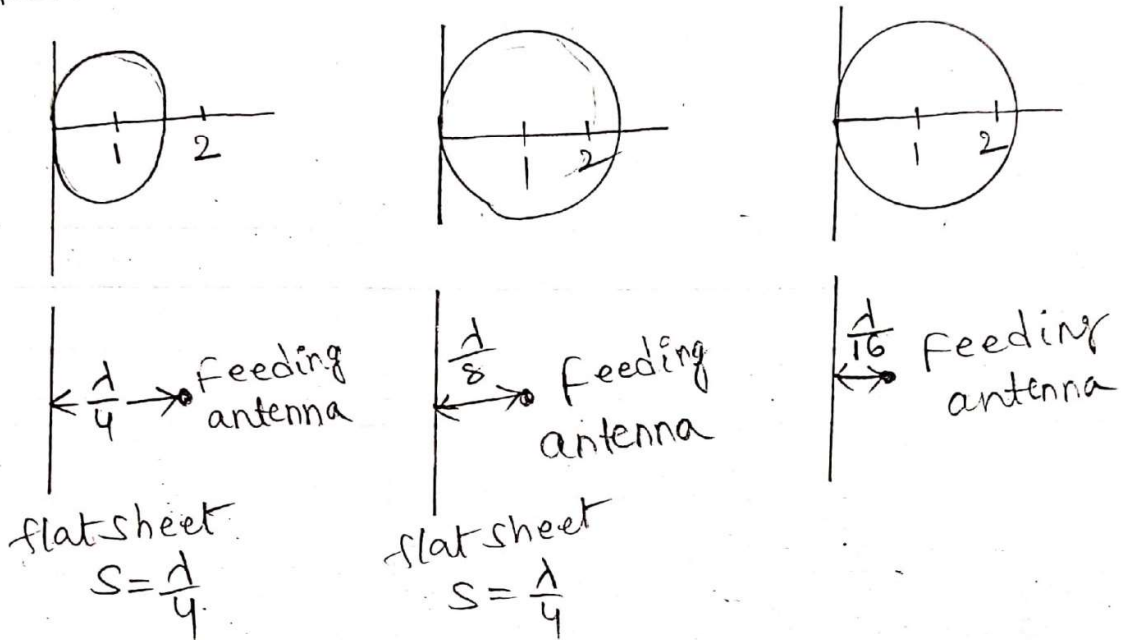 1 2
1 2
1 2
λ/4 Feeding antenna
λ/8 Feeding antenna
λ/16 Feeding antenna
flat sheet
S = λ/4
flat sheet
S = λ/4